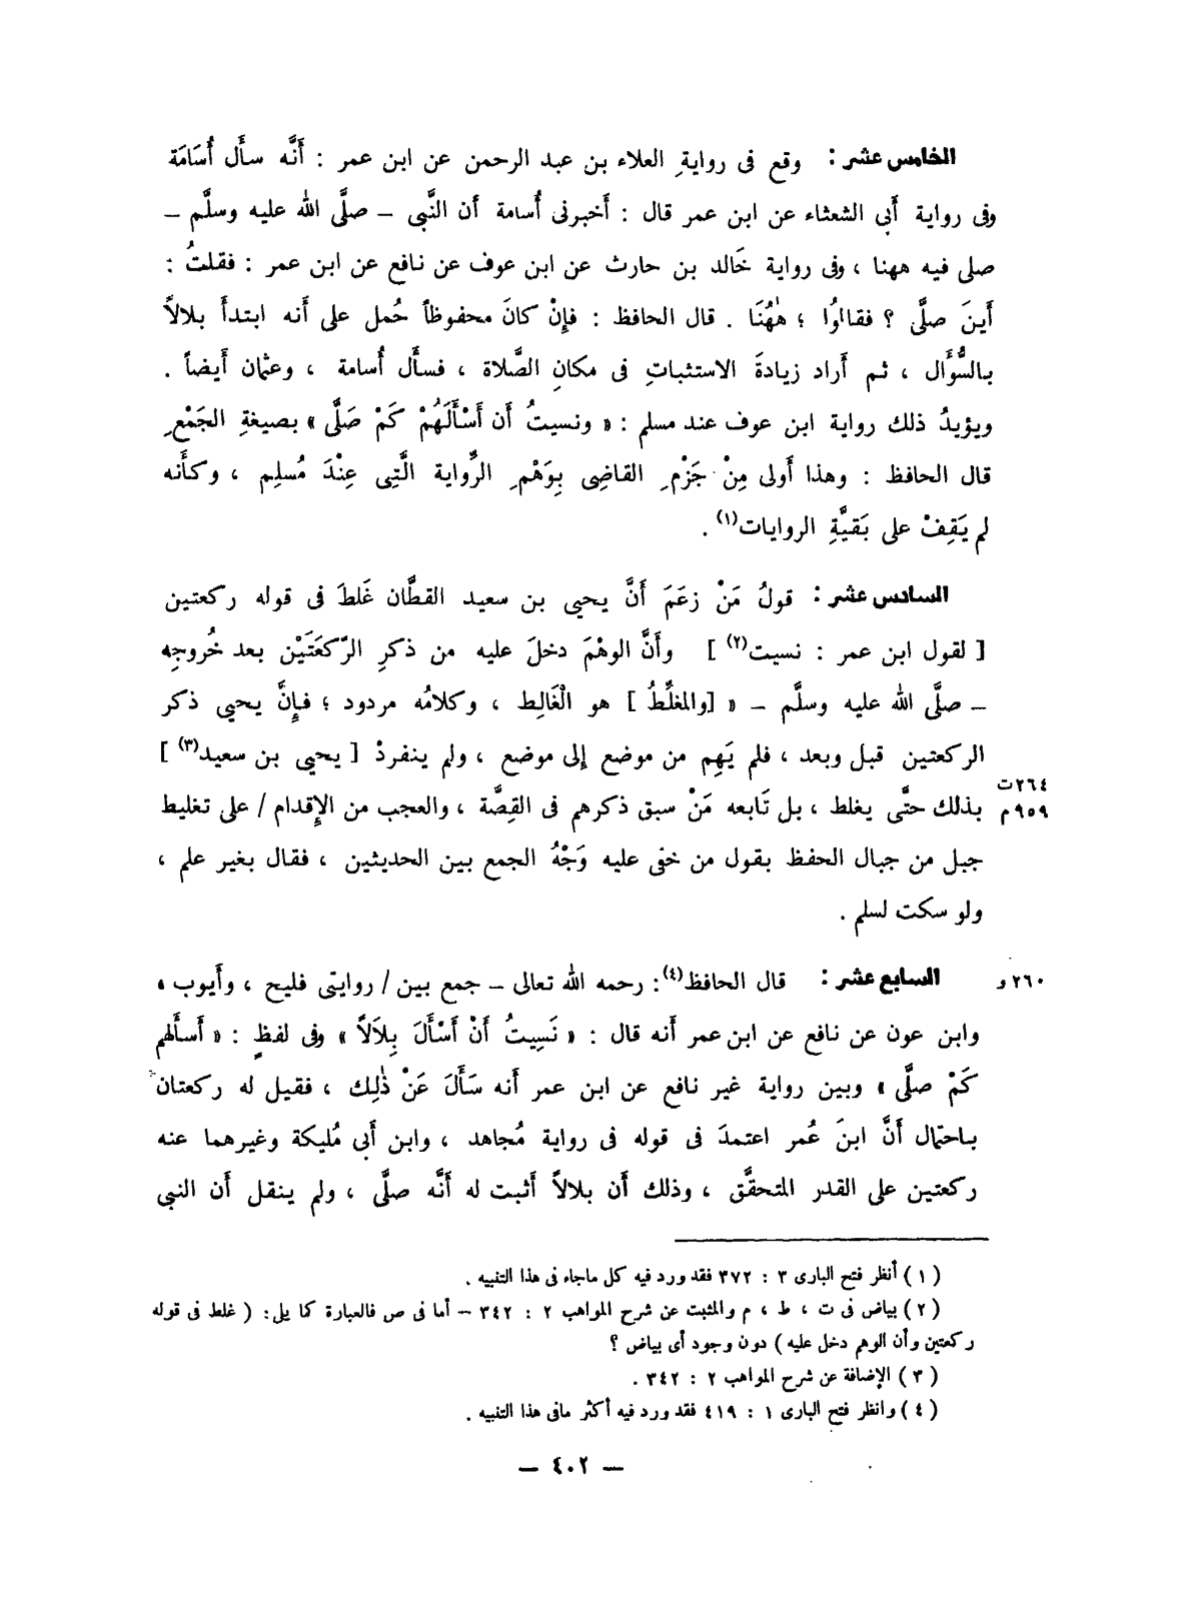 الخامس عشر : وقع فى روايةِ العلاء بن عبد الرحمن عن ابن عمر : أَنَّه سأَل أُسَامَة
وفى رواية أَبى الشعثاء عن ابن عمر قال : أَخبرنى أُسامة أن النَّبى – صلَّى الله عليه وسلَّم –
صلى فيه ههنا ، وفى رواية خَالد بن حارث عن ابن عوف عن نافع عن ابن عمر : فقلتُ :
أَينَ صلَّى ؟ فقالوُا ؛ هٰهُنَا . قال الحافظ : فإِنْ كانَ محفوظاً حُمل على أَنه ابتدأَ بلالاً
بالسُّؤَال ، ثم أَراد زيادةَ الاستثباتِ فى مكانِ الصَّلاة ، فسأَل أُسامة ، وعثمان أَيضاً .
ويؤيدُ ذلك رواية ابن عوف عند مسلم : « ونسيتُ أَن أَسْأَلَهُمْ كَمْ صَلَّى » بصيغةِ الجَمْعِ
قال الحافظ : وهذا أَولى مِنْ جَزْمِ القاضِى بِوَهْمِ الرِّواية الَّتِى عِنْدَ مُسلِم ، وكأَنه
لم يَقِفْ على بَقيَّةِ الروايات(١) .
السادس عشر : قولُ مَنْ زعَمَ أَنَّ يحيى بن سعيد القطَّان غَلطَ فى قوله ركعتين
[ لقول ابن عمر : نسيت(٢) ] وأَنَّ الوهْمَ دخلَ عليه من ذكرِ الرّكعَتَيْن بعد خُروجِه
– صلَّى الله عليه وسلَّم – « [والمغلِّطُ ] هو الْغَالِط ، وكلامُه مردود ؛ فإِنَّ يحيى ذكر
الركعتين قبل وبعد ، فلم يَهِم من موضع إلى موضع ، ولم ينفردْ [ يحيى بن سعيد(٣) ]
٢٦٤ت
بذلك حتَّى يغلط ، بل تَابعه مَنْ سبق ذكرهم فى القِصَّة ، والعجب من الإِقدام / على تغليط ٩٥٩م
جبل من جبال الحفظ بقول من خفى عليه وَجْهُ الجمع بين الحديثين ، فقال بغير علم ،
ولو سكت لسلم .
السابع عشر : قال الحافظ(٤): رحمه الله تعالى – جمع بين / روايتى فليح ، وأَيوب ، ٢٦٠ و
وابن عون عن نافع عن ابن عمر أَنه قال : « نَسِيتُ أَنْ أَسْأَلَ بِلاَلاً » وفى لفظٍ : « أَسأَلهم
كَمْ صلَّى » وبين رواية غير نافع عن ابن عمر أَنه سَأَلَ عَنْ ذٰلِك ، فقيل له ركعتان
باحتمال أَنَّ ابنَ عُمر اعتمدَ فى قوله فى رواية مُجاهد ، وابن أَبى مُليكة وغيرهما عنه
ركعتين على القدر المتحقَّق ، وذلك أَن بلالاً أَثبت له أَنَّه صلَّى ، ولم ينقل أَن النبى
( ١ ) أنظر فتح البارى ٣ : ٣٧٢ فقد ورد فيه كل ماجاء فى هذا التنبيه .
( ٢ ) بياض فى ت ، ط ، م والمثبت عن شرح المواهب ٢ : ٣٤٢ – أما فى ص فالعبارة كما يلى : ( غلط فى قوله
ركعتين وأن الوهم دخل عليه ) دون وجود أى بياض ؟
( ٣ ) الإضافة عن شرح المواهب ٢ : ٣٤٢ .
( ٤ ) وانظر فتح البارى ١ : ٤١٩ فقد ورد فيه أكثر مافى هذا التنبيه .
– ٤٠٢ –